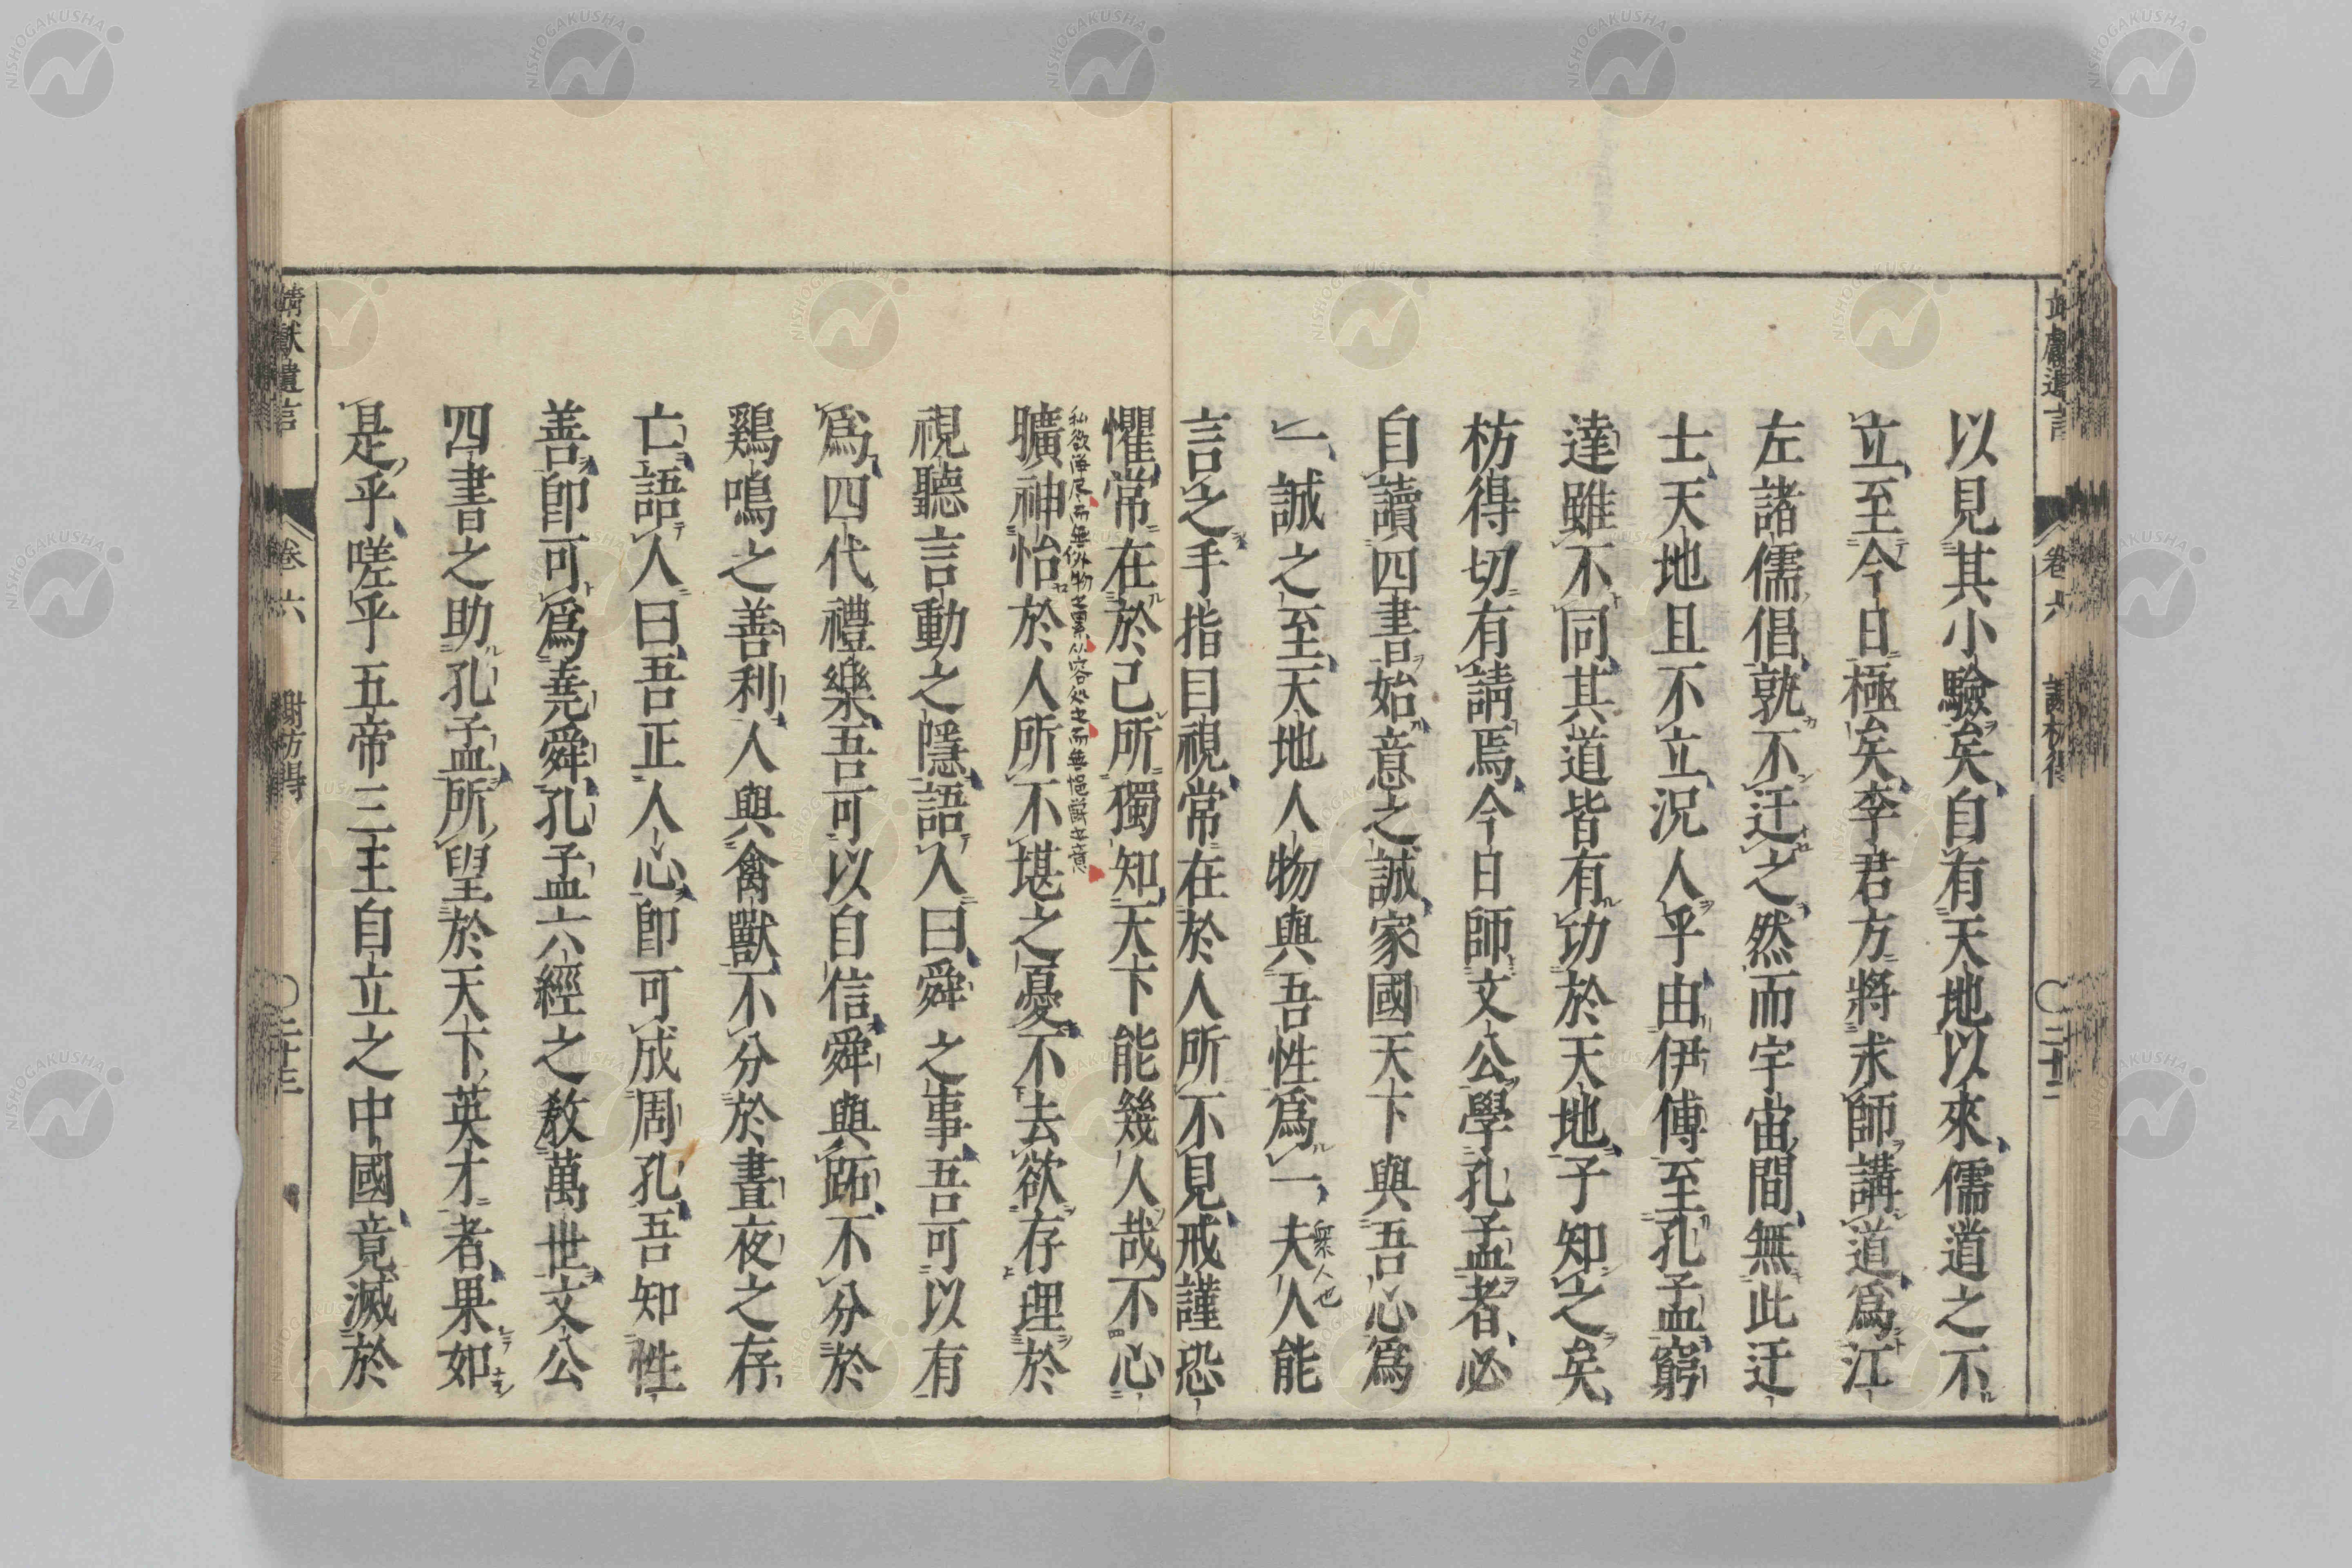 靖獻遺言 卷六 謝枋得 ○二十二
以見其小驗矣自有天地以來儒道之不
立至今日極矣李君方將求師講道爲江
左諸儒倡孰不迂之然而宇宙間無此迂
士天地且不立況人乎由伊傅至孔孟窮
達雖不同其道皆有功於天地子知之矣
枋得切有請焉今日師文公學孔孟者必
自讀四書始意之誠家國天下與吾心爲
一誠之至天地人物與吾性爲一夫人能
衆人也
言之手指目視常在於人所不見戒謹恐
懼常在於己所獨知天下能幾人哉不心
私欲淨尽而無外物之累從容処之而無慍
曠神怡於人所不堪之憂不去欲存理於
視聽言動之隱語人曰舜之事吾可以有
爲四代禮樂吾可以自信舜與跖不分於
鷄鳴之善利人與禽獸不分於晝夜之存
亡語人曰吾正人心卽可成周孔吾知性
善卽可爲堯舜孔孟六經之敎萬世文公
四書之助孔孟所望於天下英才者果如
是乎嗟乎五帝三王自立之中國竟滅於
靖獻遺言 卷六 謝枋得 ○二十三
NISHOGAKUSHA